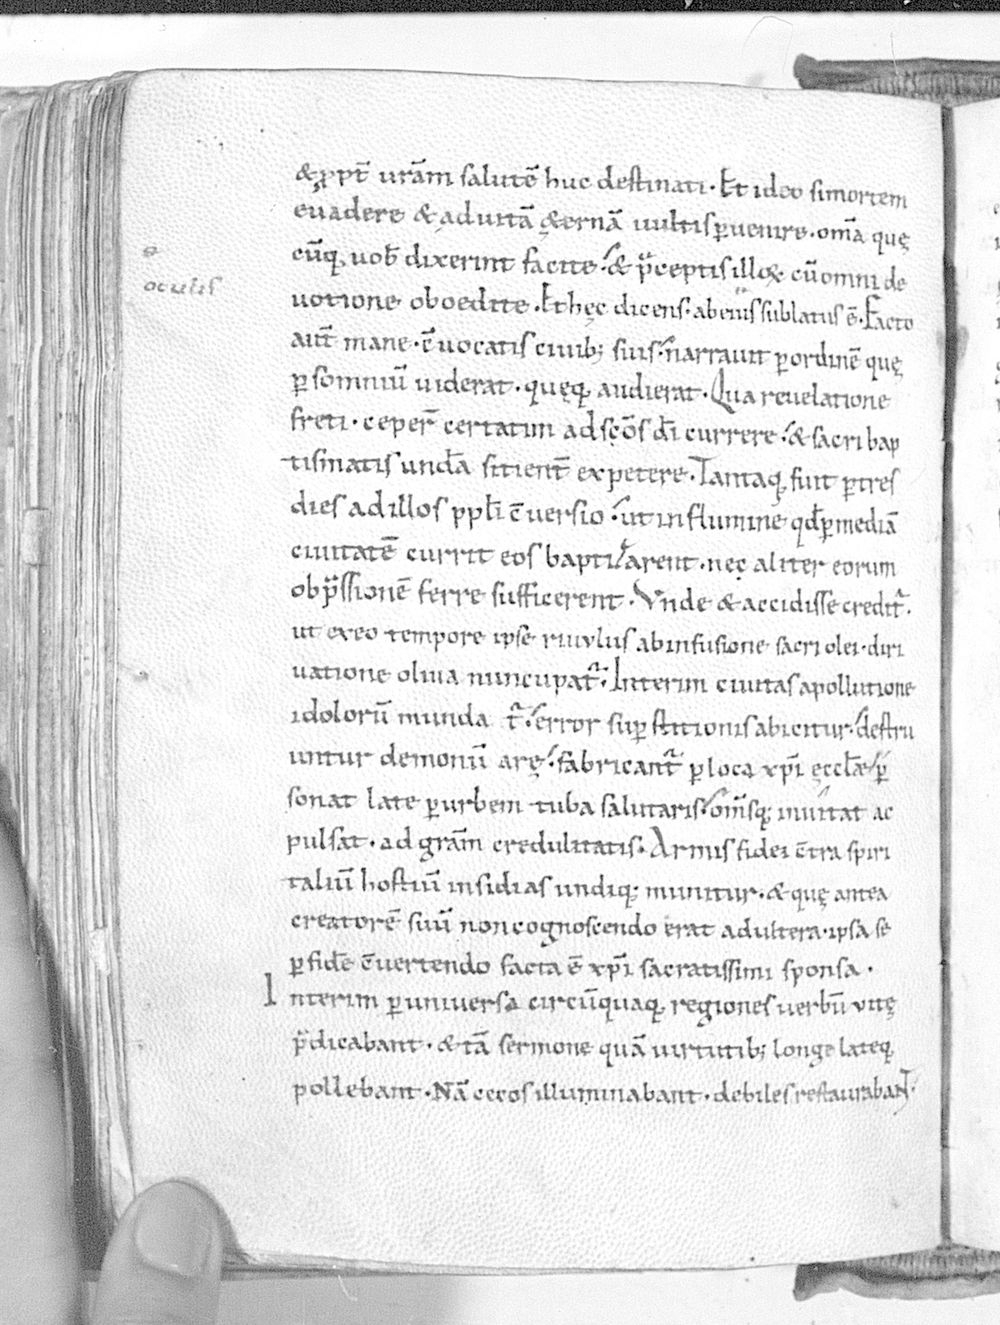 & ꝓpt̄ urām salutē huc destinati · Et ideo si mortem
euadere & ad uitā ęternā uultis ꝑuenire · om̄a quę
cūq; uob̄ dixerint facite · & p̄ceptis illoꝝ cū omni de
e
oculis
uotione oboedite · Et hęc dicens · ab eius sublatus ē · Facto
aut̄ mane · c̄uocatis ciuib; suis · narrauit ꝑ ordinē quę
ꝑ somniū uiderat · quęq; audierat · Qua reuelatione
freti · ceper̄ certatim ad sc̄os dī currere · & sacri bap
tismatis undā sitient̄ expetere · Tantaq; fuit ꝑ tres
dies ad illos ppli c̄uersio · ut in flumine qd̄ ꝑ mediā
ciuitatē currit eos baptizarent · nec aliter eorum
ob p̄ssionē ferre sufficerent · Vnde & accidisse credit̄ ·
ut ex eo tempore ipse riuulus ab infusione sacri olei · diri
uatione oliua nuncupat̄ · Interim ciuitas a pollutione
idolorū munda t̄ · error suꝑstitionis abicitur · destru
untur demonū arę · fabricant̄ ꝑ loca xp̄i ęcclæ · ꝑ
sonat late ꝑ urbem tuba salutaris · om̄sq; inuitat ac
pulsat · ad grām credulitatis · Armis fidei c̄tra spiri
taliū hostiū insidias undiq; munitur · & quę antea
creatorē suū non cognoscendo erat adultera · ipsa se
ꝑ fidē c̄uertendo facta ē xp̄i sacratissimi sponsa ·
Interim ꝑ uniuersa circūquaq; regiones uerbū uitę
p̄dicabant · & tā sermone quā uirtutib; longe lateq;
pollebant · Nā cecos illuminabant · debiles restaurabant ·